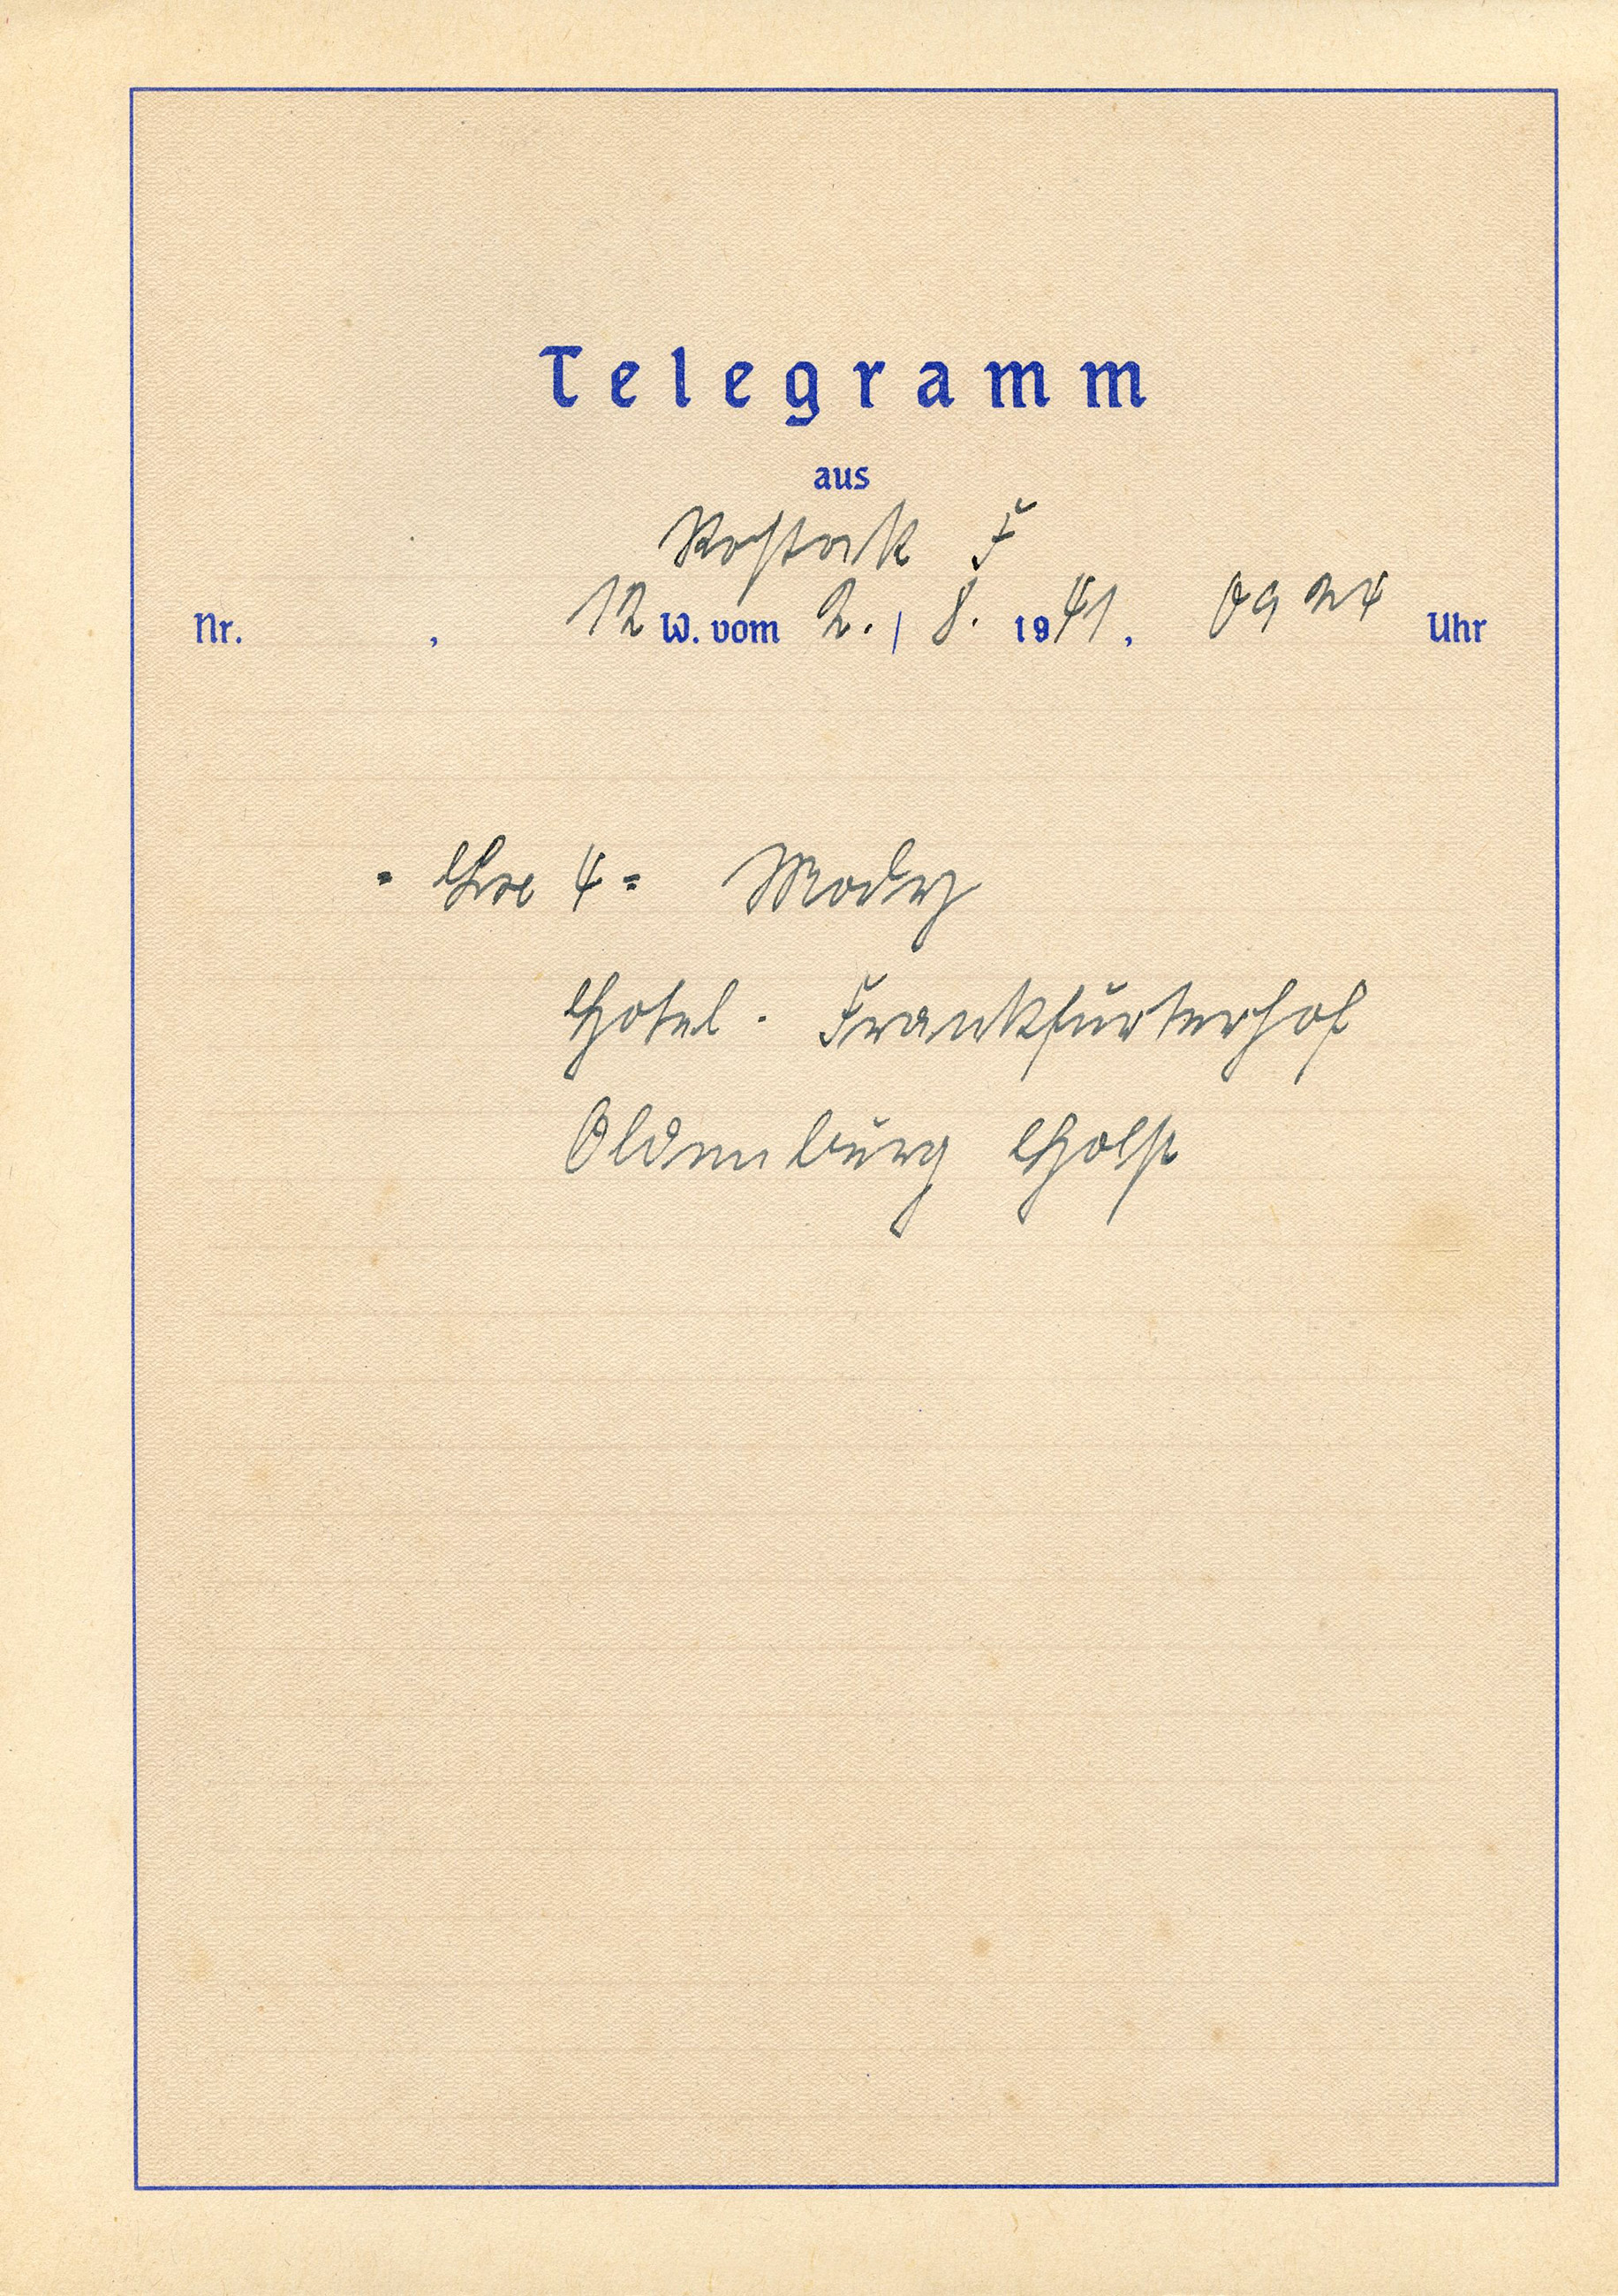 Telegramm
aus
Rostock F
Nr. , 12 W. vom 2. / 8. 1941, 0924 Uhr
= Lx 4 =
Hotel - Frankfurterhof
Oldenburg Holst